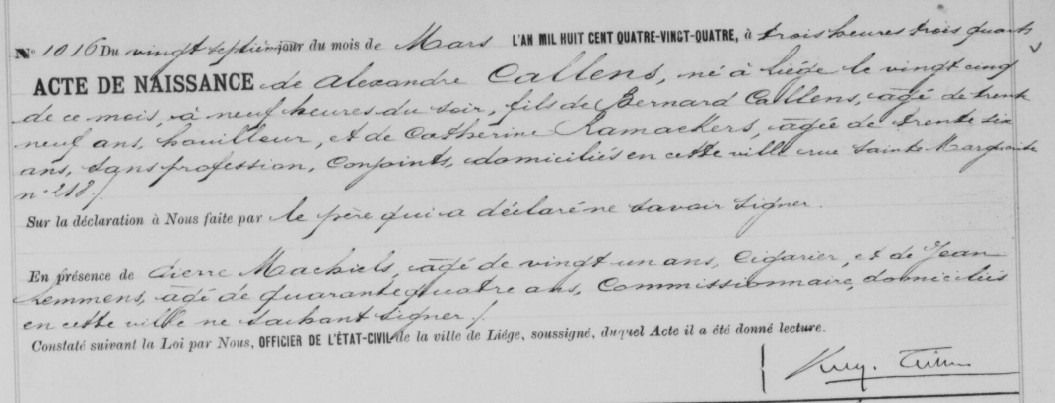 N° 1016 Du vingt septième jour du mois de Mars L'AN MIL HUIT CENT QUATRE-VINGT-QUATRE, à trois heures trois quarts
ACTE DE NAISSANCE de Alexandre Callens, né à Liége le vingt cinq
de ce mois, à neuf heures du soir, fils de Bernard Callens, agé de trente
neuf ans, houilleur, et de Catherine Ramackers, agée de trente six
ans, sans profession, conjoints, domiciliés en cette ville rue Sainte Marguerite
n° 218/
Sur la déclaration à Nous faite par le père qui a déclaré ne savoir signer.
En présence de Pierre Machiels, agé de vingt un ans, cigarier, et de Jean
Lemmens, agé de quarante quatre ans, commissionnaire, domiciliés
en cette ville ne sachant signer/
Constaté suivant la Loi par Nous, OFFICIER DE L'ÉTAT-CIVIL de la ville de Liége, soussigné, duquel Acte il a été donné lecture.